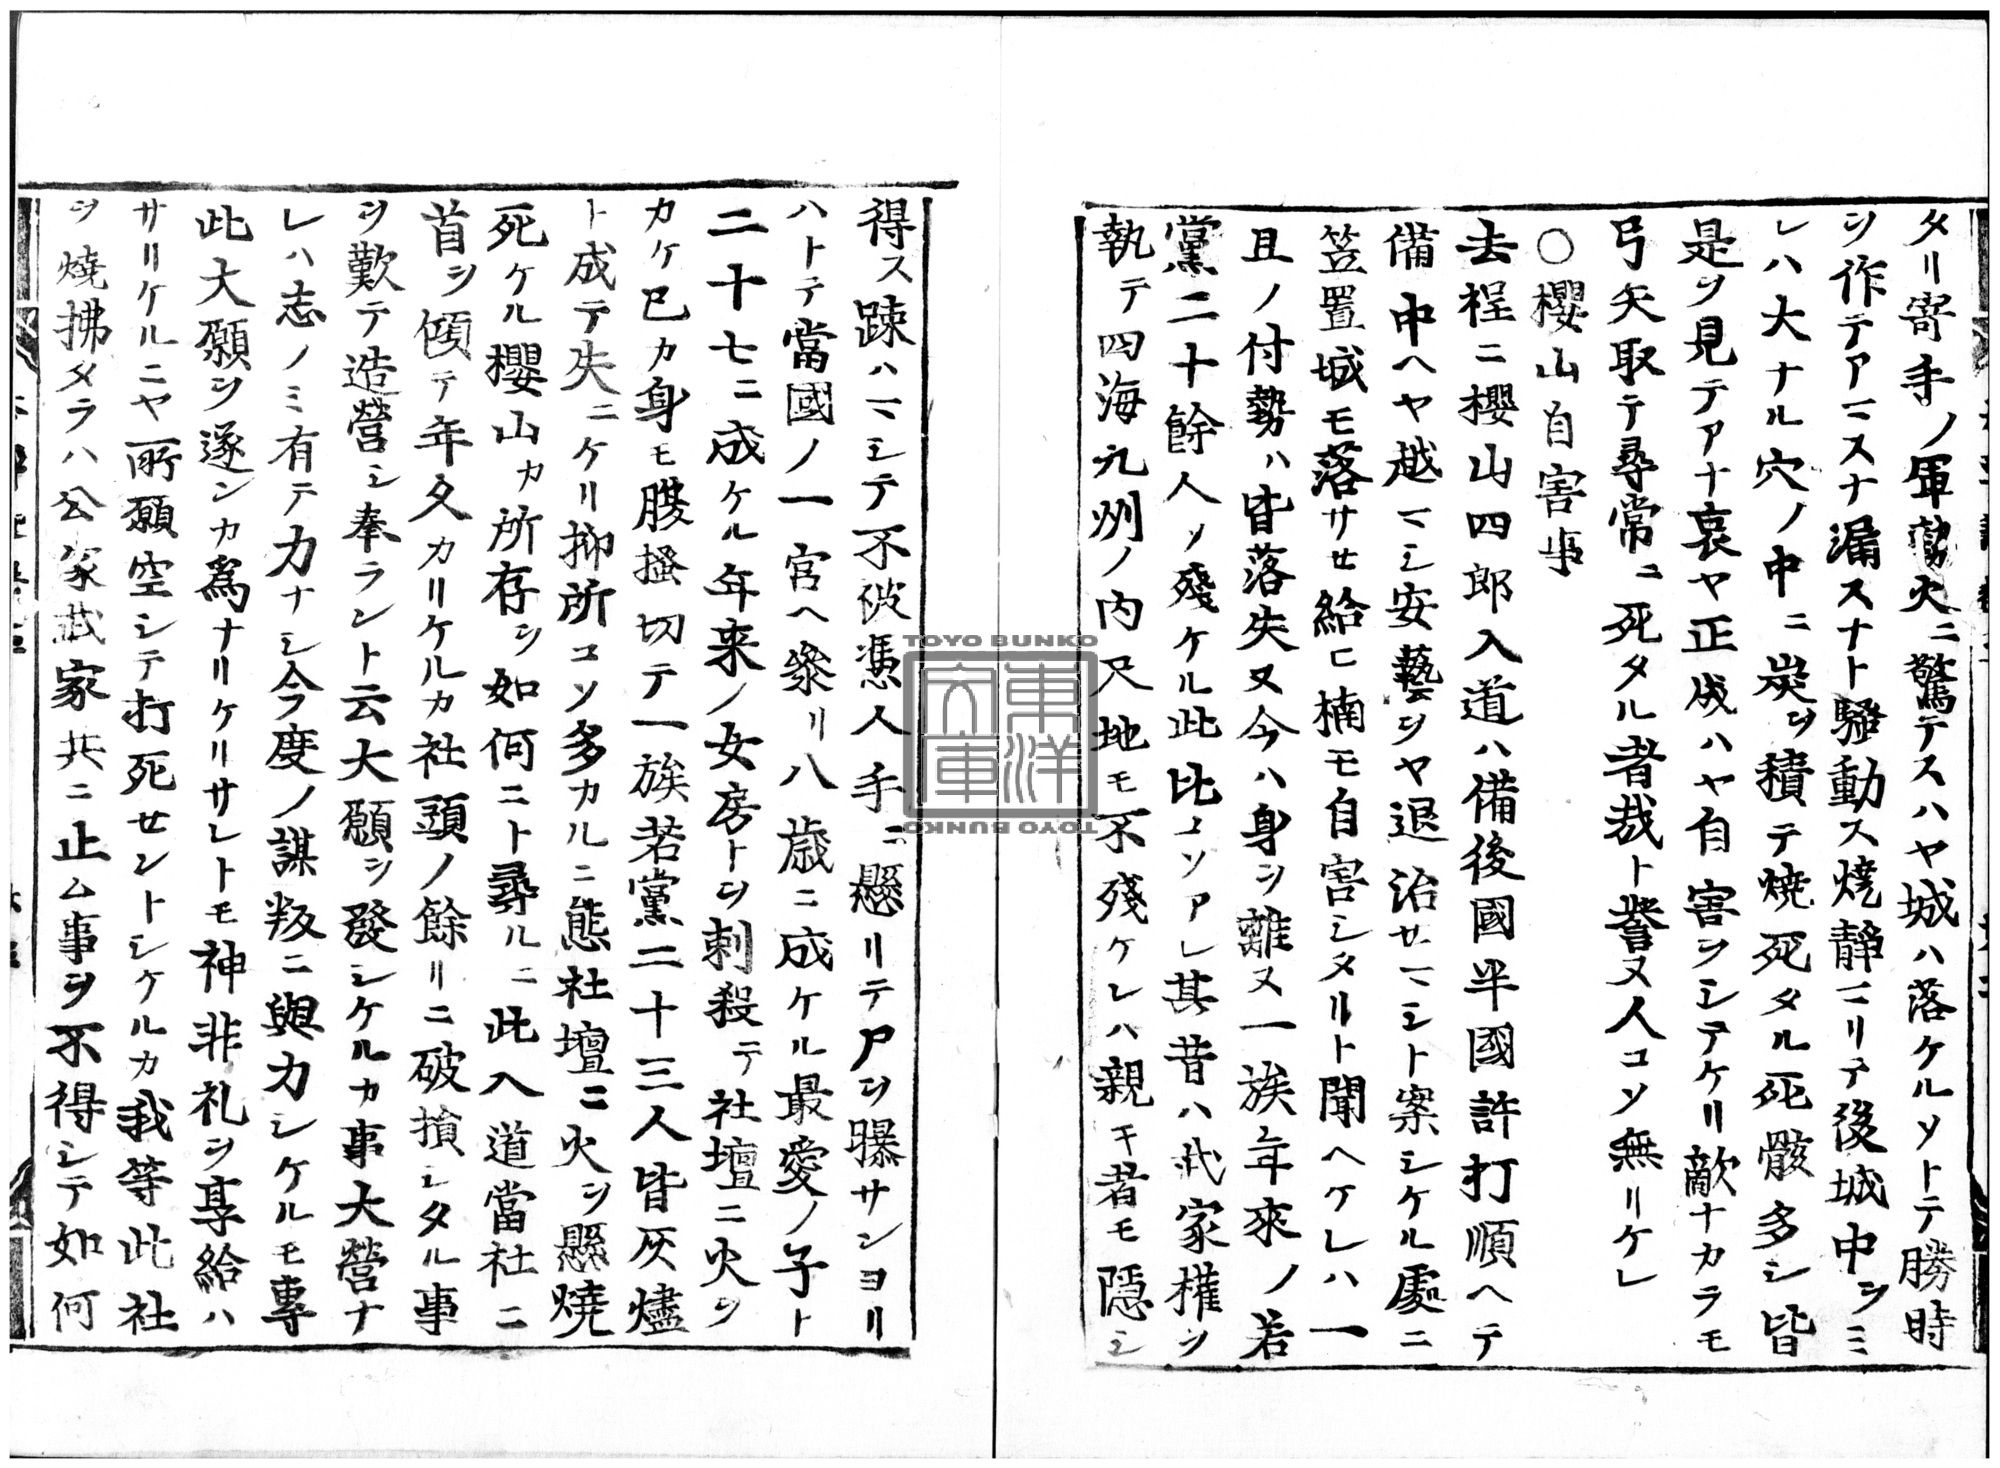 タリ寄手ノ軍勢火ニ驚テスハヤ城ハ落ケルソトテ勝時
ヲ作テアマスナ漏スナト騒動ス焼静マリテ後城中ヲミ
レハ大ナル穴ノ中ニ炭ヲ積テ焼死タル死骸多シ皆
是ヲ見テアナ哀ヤ正成ハヤ自害ヲシテケリ敵ナカラモ
弓矢取テ尋常ニ死タル者哉ト誉ヌ人コソ無リケレ
○櫻山自害事
去程ニ櫻山四郎入道ハ備後國半國許打順ヘテ
備中ヘヤ越マシ安藝ヲヤ退治セマシト案シケル處ニ
笠置城モ落サセ給ヒ楠モ自害シタリト聞ヘケレハ一
旦ノ付勢ハ皆落失ヌ今ハ身ヲ離ヌ一族年來ノ若
黨二十餘人ソ殘ケル此比コソアレ其昔ハ武家權ヲ
執テ四海九州ノ内尺地モ不殘ケレハ親キ者モ隱シ
得ス踈ハマシテ不被憑人手ニ懸リテ尸ヲ曝サンヨリ
ハトテ當國ノ一宮ヘ參リ八歳ニ成ケル最愛ノ子ト
二十七ニ成ケル年来ノ女房トヲ刺殺テ社壇ニ火ヲ
カケ已カ身モ腹搔切テ一族若黨二十三人皆灰燼
ト成テ失ニケリ抑所コソ多カルニ態社壇ニ火ヲ懸燒
死ケル櫻山カ所存ヲ如何ニト尋ルニ此入道當社ニ
首ヲ傾テ年久カリケルカ社頭ノ餘リニ破損シタル事
ヲ歎テ造營シ奉ラント云大願ヲ發シケルカ事大營ナ
レハ志ノミ有テ力ナシ今度ノ謀叛ニ與力シケルモ專
此大願ヲ遂ンカ爲ナリケリサレトモ神非礼ヲ享給ハ
サリケルニヤ所願空シテ打死セントシケルカ我等此社
ヲ燒拂タラハ公家武家共ニ止ム事ヲ不得シテ如何
TOYO BUNKO
東洋
文庫
TOYO BUNKO